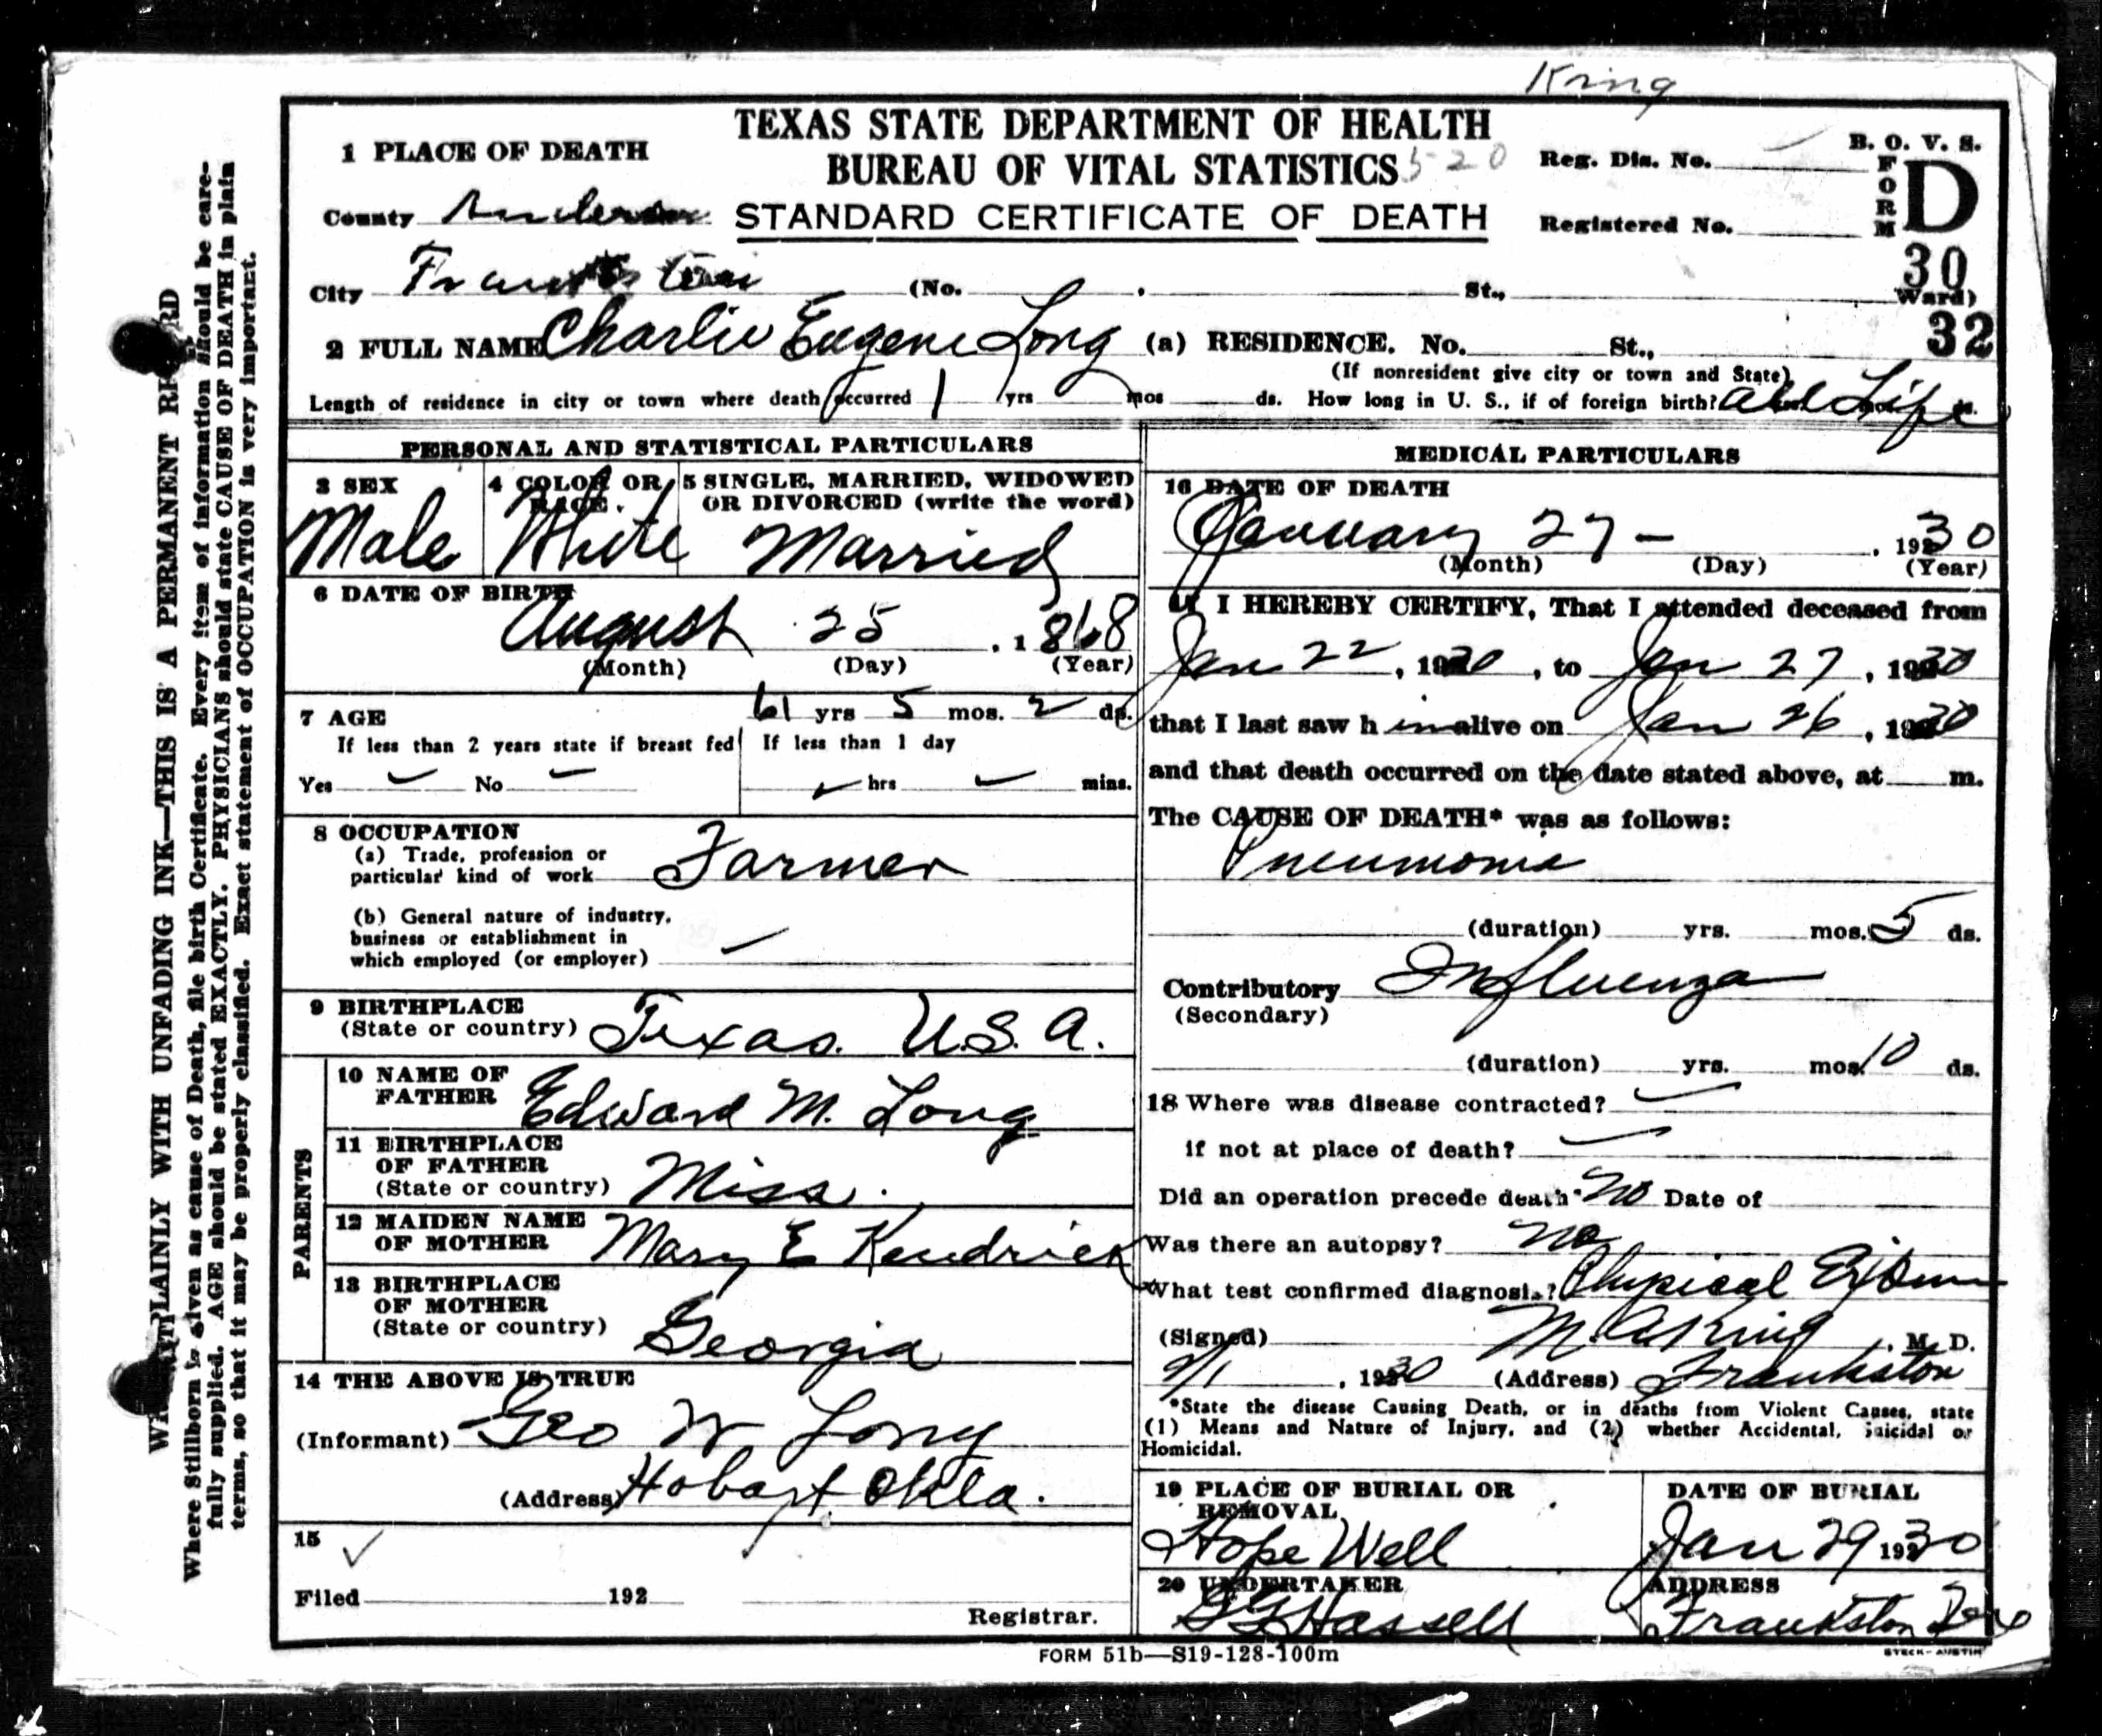 King
TEXAS STATE DEPARTMENT OF HEALTH
BUREAU OF VITAL STATISTICS 520
STANDARD CERTIFICATE OF DEATH
Reg. Dis. No.
Registered No.
B. O. V. S.
FORM D
30
32
1 PLACE OF DEATH
County Anderson
City Frankston (No. St., Ward)
2 FULL NAME Charlie Eugene Long (a) RESIDENCE. No. St.,
(If nonresident give city or town and State)
Length of residence in city or town where death occurred 1 yrs mos ds. How long in U. S., if of foreign birth? all Life
PERSONAL AND STATISTICAL PARTICULARS
3 SEX
Male
4 COLOR OR RACE.
White
5 SINGLE, MARRIED, WIDOWED
OR DIVORCED (write the word)
Married
6 DATE OF BIRTH
August 25, 1868
(Month) (Day) (Year)
7 AGE 61 yrs 5 mos. 2 ds.
If less than 2 years state if breast fed
Yes No
If less than 1 day
hrs mins.
8 OCCUPATION
(a) Trade, profession or
particular kind of work Farmer
(b) General nature of industry,
business or establishment in
which employed (or employer)
9 BIRTHPLACE
(State or country) Texas. U.S.A.
PARENTS
10 NAME OF
FATHER Edward M. Long
11 BIRTHPLACE
OF FATHER
(State or country) Miss.
12 MAIDEN NAME
OF MOTHER Mary E Kendrick
13 BIRTHPLACE
OF MOTHER
(State or country) Georgia
14 THE ABOVE IS TRUE
(Informant) Geo W Long
(Address) Hobart Okla.
15
Filed 192
Registrar.
MEDICAL PARTICULARS
16 DATE OF DEATH
January 27 - , 1930
(Month) (Day) (Year)
17 I HEREBY CERTIFY, That I attended deceased from
Jan 22, 1930, to Jan 27, 1930
that I last saw him alive on Jan 26, 1930
and that death occurred on the date stated above, at m.
The CAUSE OF DEATH* was as follows:
Pneumonia
(duration) yrs. mos. 5 ds.
Contributory Influenza
(Secondary)
(duration) yrs. mos. 10 ds.
18 Where was disease contracted?
if not at place of death?
Did an operation precede death? No Date of
Was there an autopsy? no
What test confirmed diagnosis? Physical Exam
(Signed) M. A King, M. D.
2/1, 1930 (Address) Frankston
*State the disease Causing Death, or in deaths from Violent Causes, state
(1) Means and Nature of Injury, and (2) whether Accidental, Suicidal or
Homicidal.
19 PLACE OF BURIAL OR
REMOVAL
Hope Well
DATE OF BURIAL
Jan 29 1930
20 UNDERTAKER
Hassell
ADDRESS
Frankston Tex
FORM 51b—S19-128-100m
STECK-AUSTIN
WRITE PLAINLY WITH UNFADING INK—THIS IS A PERMANENT RECORD
Where Stillborn is given as cause of Death, file birth Certificate. Every item of information should be care-
fully supplied. AGE should be stated EXACTLY. PHYSICIANS should state CAUSE OF DEATH in plain
terms, so that it may be properly classified. Exact statement of OCCUPATION is very important.